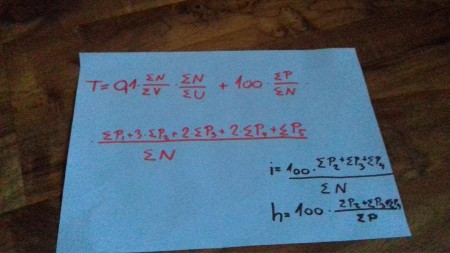 T = 0,1 · ΣN/ΣV · ΣN/ΣU + 100 · ΣP/ΣN
· ΣP₁+3·ΣP₂+2·ΣP₃+2·ΣP₄+ΣP₅ / ΣN
i = 100 · ΣP₂+ΣP₃+ΣP₄ / ΣN
h = 100 · ΣP₂+ΣP₃+ΣP₄ / ΣP